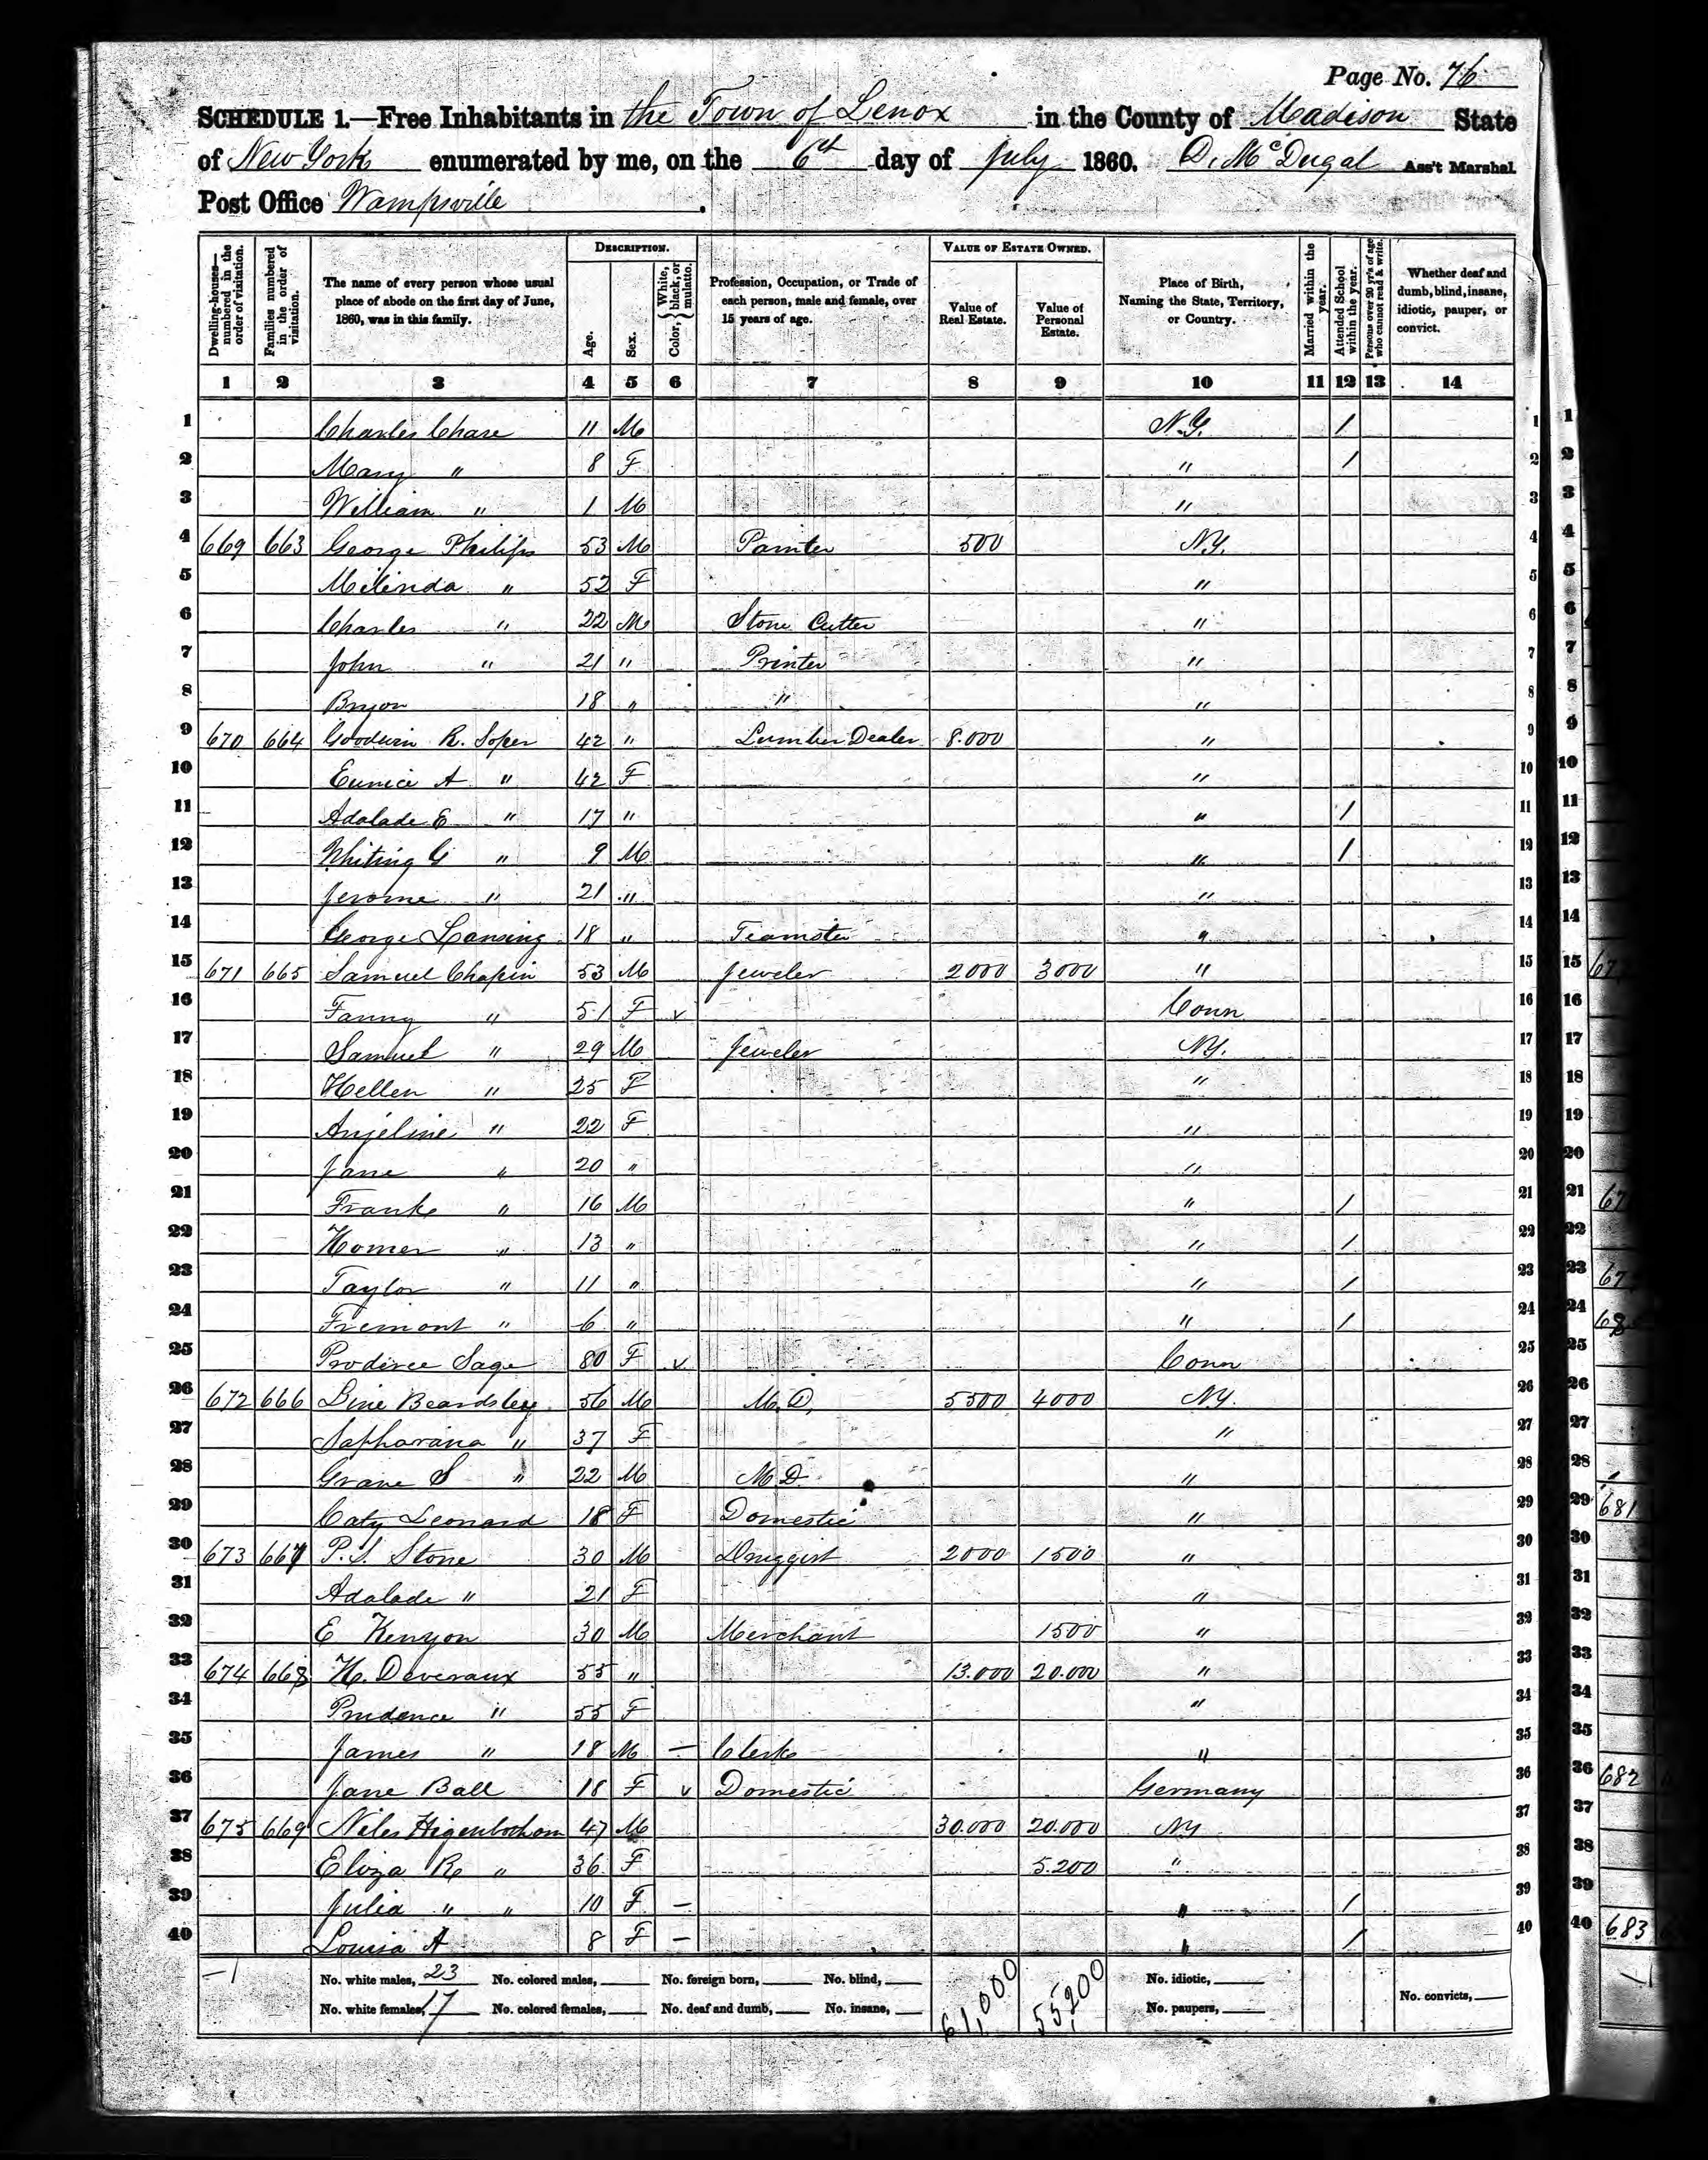 Page No. 76
SCHEDULE 1.—Free Inhabitants in the Town of Lenox in the County of Madison State
of New York enumerated by me, on the 6th day of July 1860. D. McDugal Ass't Marshal
Post Office Wampsville.
Dwelling-houses—numbered in the order of visitation. Families numbered in the order of visitation. The name of every person whose usual place of abode on the first day of June, 1860, was in this family. DESCRIPTION. Age. Sex. Color, {White, black, or mulatto. Profession, Occupation, or Trade of each person, male and female, over 15 years of age. VALUE OF ESTATE OWNED. Value of Real Estate. Value of Personal Estate. Place of Birth, Naming the State, Territory, or Country. Married within the year. Attended School within the year. Persons over 20 y'rs of age who cannot read & write. Whether deaf and dumb, blind, insane, idiotic, pauper, or convict.
1 2 3 4 5 6 7 8 9 10 11 12 13 14
1 Charles Chase 11 M N.Y. / 1 1
2 Mary " 8 F " / 2 2
3 William " 1 M " 3 3
4 669 663 George Philips 53 M Painter 500 N.Y. 4 4
5 Milinda " 52 F " 5 5
6 Charles " 22 M Stone Cutter " 6 6
7 John " 21 " Printer " 7 7
8 Bryon 18 " " " 8 8
9 670 664 Goodwin R. Soper 42 " Lumber Dealer 8.000 " 9 9
10 Eunice A " 42 F " 10 10
11 Adalade E " 17 " " / 11 11
12 Whiting G " 9 M " / 12 12
13 Jerome " 21 " " 13 13
14 George Lansing 18 " Teamster " 14 14
15 671 665 Samuel Chapin 53 M Jeweler 2000 3000 " 15 15
16 Fanny " 51 F v Conn 16 16
17 Samuel " 29 M Jeweler N.Y. 17 17
18 Hellen " 25 F " 18 18
19 Anjeline " 22 F " 19 19
20 Jane " 20 " " 20 20
21 Frank " 16 M " / 21 21
22 Homer " 13 " " / 22 22
23 Taylor " 11 " " / 23 23
24 Fremont " 6 " " / 24 24
25 Sage 80 F v Conn 25 25
26 672 666 Beardsley 56 M M.D. 5500 4000 N.Y. 26 26
27 " 37 F " 27 27
28 S " 22 M M.D. " 28 28
29 Caty Leonard 18 F Domestic " 29 29 681
30 673 667 P. S. Stone 30 M Druggist 2000 1500 " 30 30
31 Adalade " 21 F " 31 31
32 E Kenyon 30 M Merchant 1500 " 32 32
33 674 668 H. Deveraux 55 " 13.000 20.000 " 33 33
34 Prudence " 55 F " 34 34
35 James " 18 M — Clerk " 35 35
36 Jane Ball 18 F v Domestic Germany 36 36 682
37 675 669 Niles Higenbotham 47 M 30.000 20.000 NY 37 37
38 Eliza R " 36 F 5.200 " 38 38
39 Julia " " 10 F — " / 39 39
40 Louisa A 8 F — " / 40 40 683
—1 No. white males, 23 No. colored males, No. foreign born, No. blind, 61,000 55,200 No. idiotic,
No. white females, 17 No. colored females, No. deaf and dumb, No. insane, No. paupers, No. convicts,